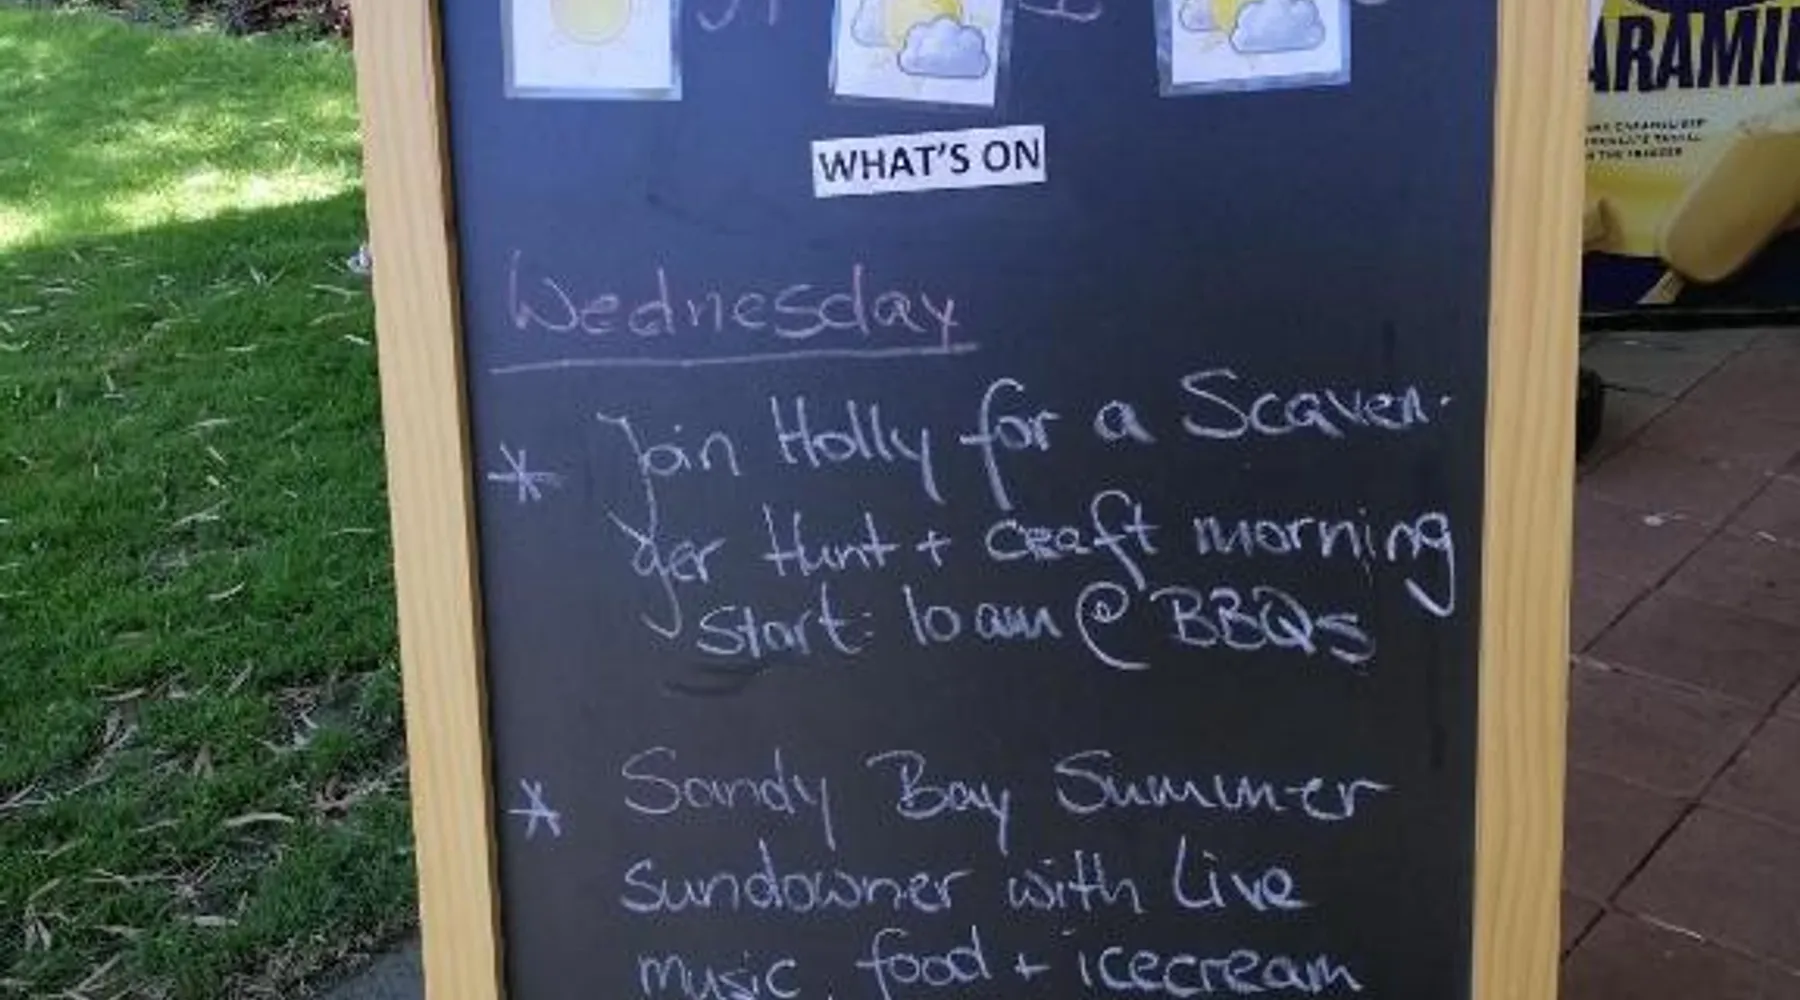 WHAT'S ON
Wednesday
* Join Holly for a Scaven-
ger Hunt + craft morning
Start: 10am @ BBQs
* Sandy Bay Summer
Sundowner with Live
music, food + icecream